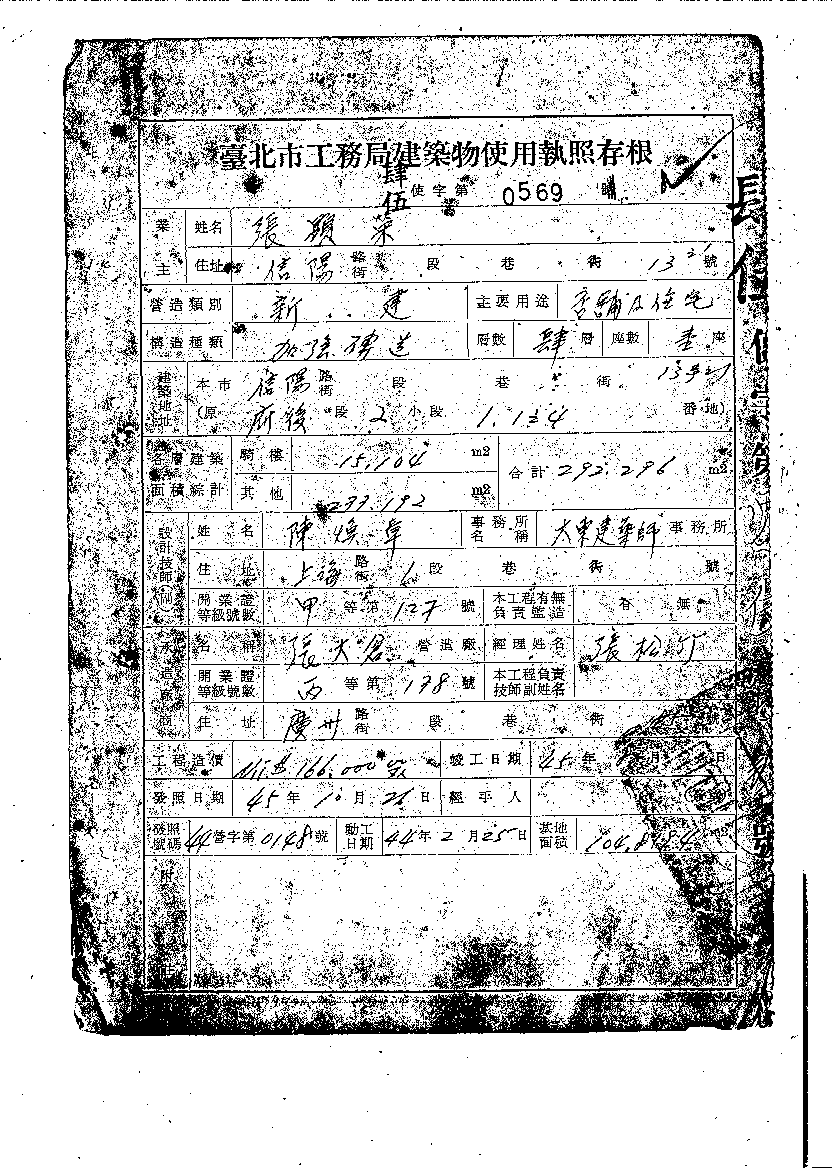 臺北市工務局建築物使用執照存根
肆伍 使字第 0569 號
業主 姓名 張顯榮
住址 信陽 路街 段 巷 街 號
營造類別 新建 主要用途 店舖及住宅
構造種類 加強磚造 層數 肆 層 座數 壹 座
建築地址 本市 信陽 路街 段 巷 街
(原 府後 段 2 小段 1.134 番地)
各層建築面積綜計 騎樓 15.104 m2 合計 292.296 m2
其他 m2
設計技師 姓名 陳 事務所名稱 大東建築師 事務所
住址 上海 路街 段 巷 街 號
開業證等級號數 甲 等第 127 號 本工程有無負責監造 有 無
名稱 張大倉 營造廠 經理姓名 張松竹
開業證等級號數 丙 等第 178 號 本工程負責技師副姓名
住址 廣州 路街 段 巷 街 號
工程造價 NT$ 166.000 竣工日期 45 年 月 日
發照日期 45 年 10 月 日 經手人
發照號碼 44 營字第 0148 號 動工日期 44 年 2 月 25 日 基地面積 m2
附